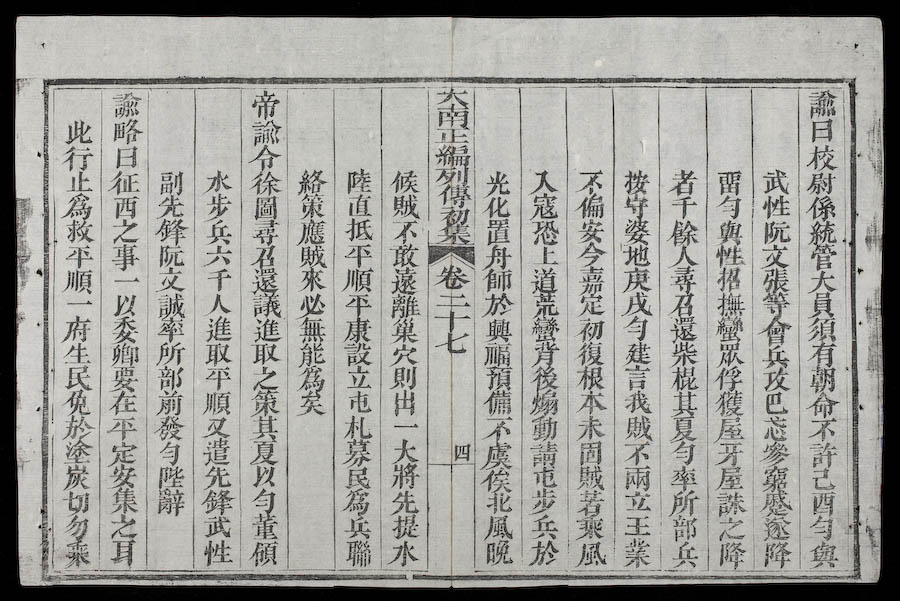 諭曰校尉係統管大員須有朝命不許己酉勻與
武性阮文張等會兵攻巴忘參窮蹙遂降
畱勻與性招撫蠻眾俘獲屋牙屋誅之降
者千餘人尋召還柴棍其夏勻率所部兵
按守婆地庚戌勻建言我賊不兩立王業
不偏安今嘉定初復根本未固賊若乘風
入寇恐上道荒蠻背後煽動請屯步兵於
光化置舟師於興福預備不虞俟北風晚
大南正編列傳初集 卷二十七 四
候賊不敢遠離巢穴則出一大將先提水
陸直抵平順平康設立屯札募民爲兵聯
絡策應賊來必無能爲矣
帝諭令徐圖尋召還議進取之策其夏以勻董領
水步兵六千人進取平順又遣先鋒武性
副先鋒阮文誠率所部前發勻陛辭
諭略曰征西之事一以委卿要在平定安集之耳
此行止爲救平順一府生民免於塗炭切勿乘